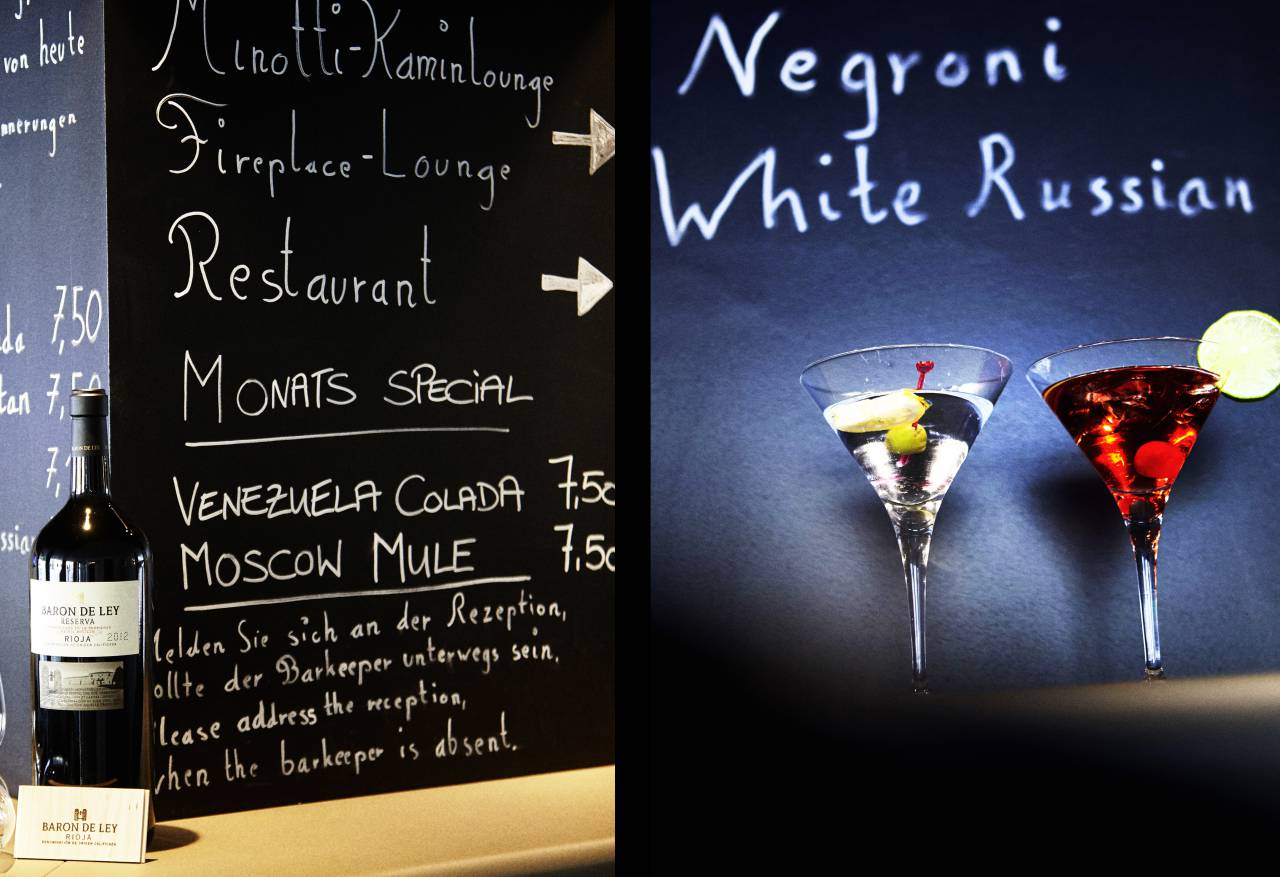 von heute
7,50
7,50
Minotti-Kaminlounge
Fireplace-Lounge
Restaurant
MONATS SPECIAL
VENEZUELA COLADA 7,50
MOSCOW MULE 7,50
Melden Sie sich an der Rezeption,
sollte der Barkeeper unterwegs sein.
Please address the reception,
when the barkeeper is absent.
BARON DE LEY
RESERVA
RIOJA 2012
BARON DE LEY
RIOJA
DENOMINACIÓN DE ORIGEN CALIFICADA
Negroni
White Russian